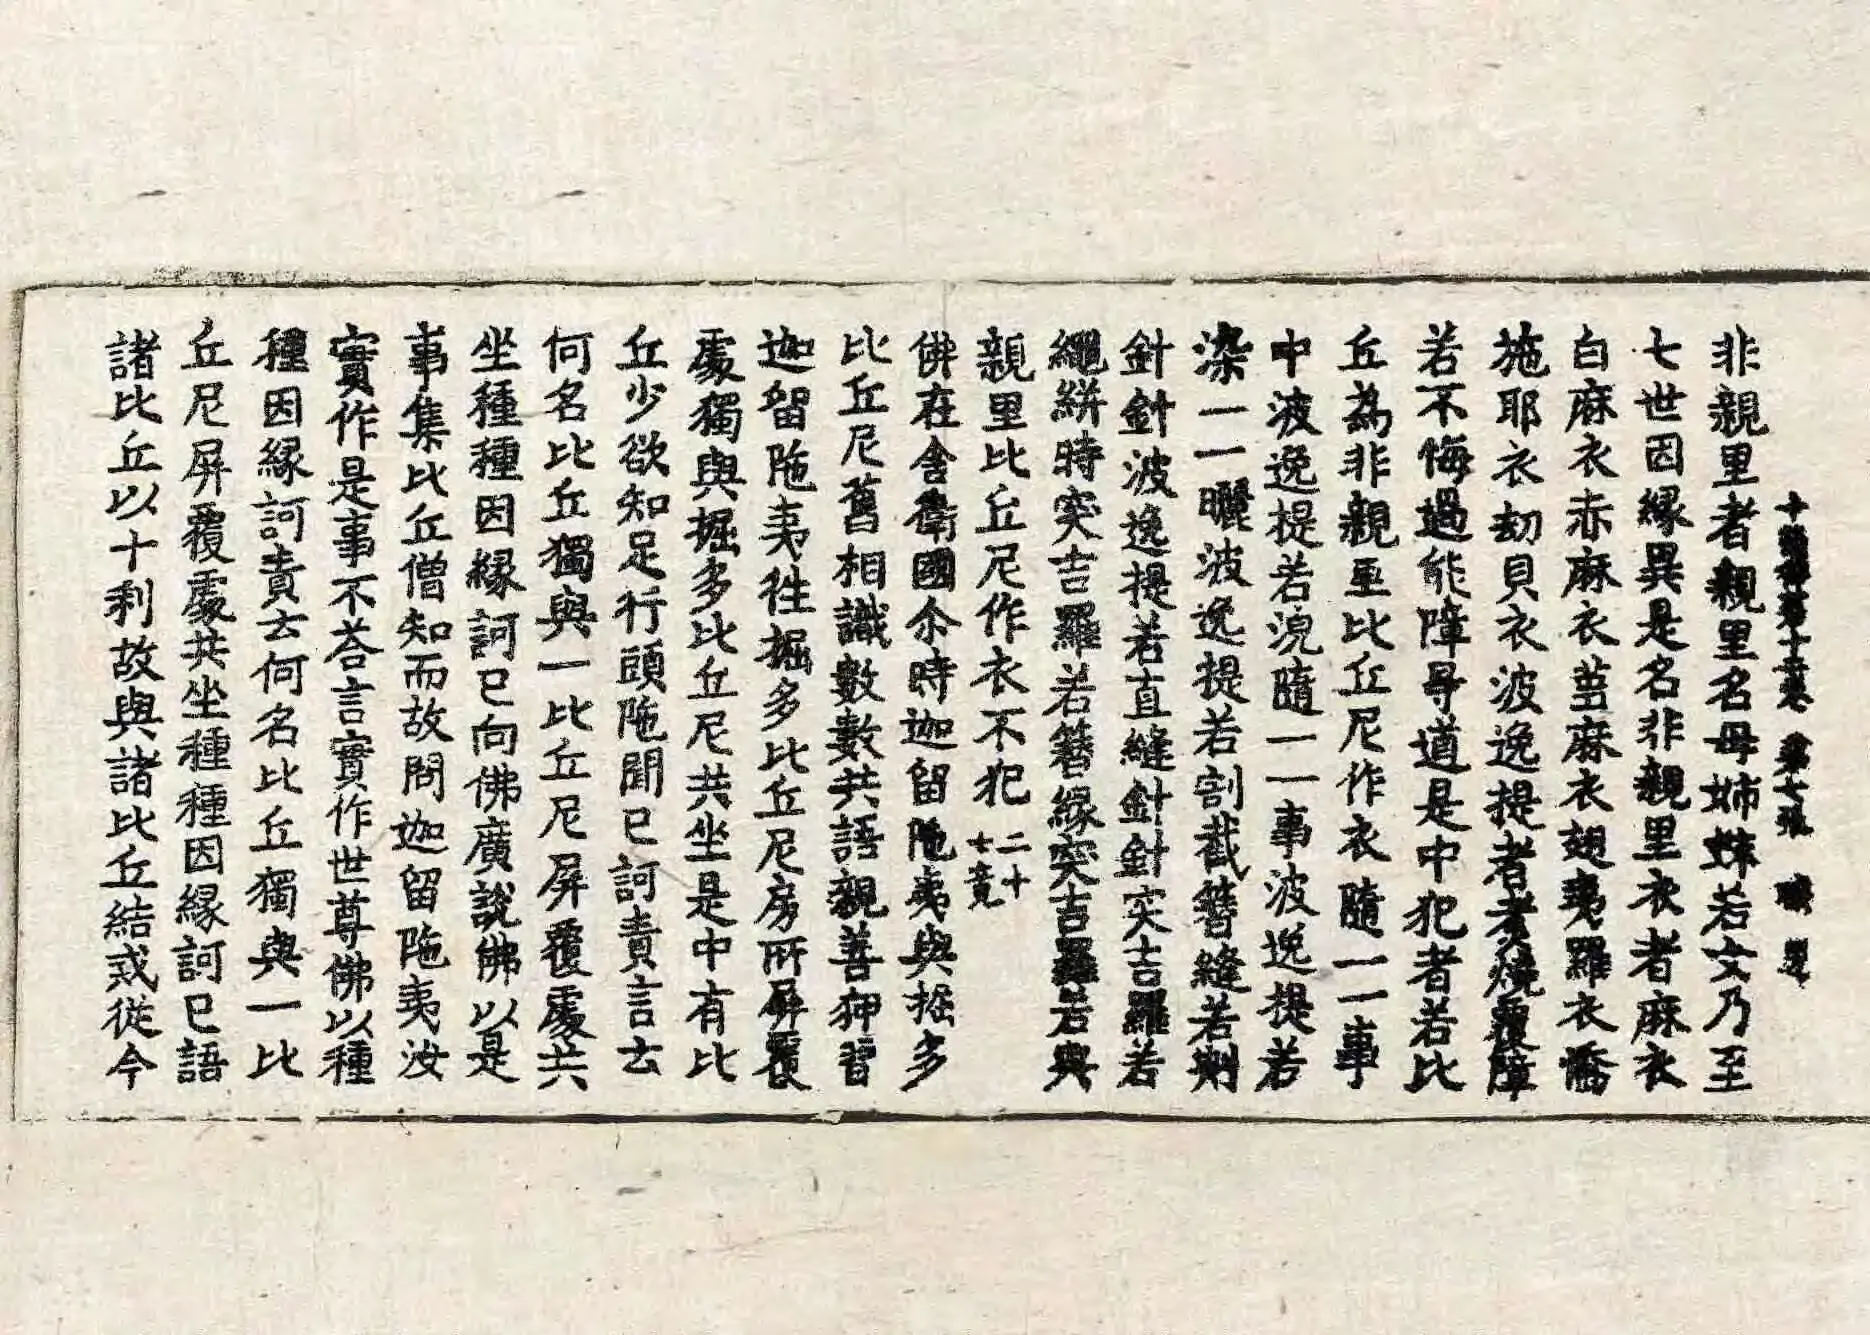 十誦律第十一卷 第七張
非親里者親里名母姉妹若女乃至
七世因緣異是名非親里衣者麻衣
白麻衣赤麻衣蒭麻衣翅夷羅衣憍
施耶衣劫貝衣波逸提者煮燒覆障
若不悔過能障㝵道是中犯者若比
丘為非親里比丘尼作衣隨一一事
中波逸提若浣隨一一事波逸提若
染一一曬波逸提若割截簪縫若刺
針針波逸提若直縫針針突吉羅若
繩絣時突吉羅若簪緣突吉羅若與
親里比丘尼作衣不犯 二十七竟
佛在舍衛國尒時迦留陁夷與掘多
比丘尼舊相識數數共語親善狎習
迦留陁夷徃掘多比丘尼房所屏覆
處獨與掘多比丘尼共坐是中有比
丘少欲知足行頭陁聞已訶責言云
何名比丘獨與一比丘尼屏覆處共
坐種種因緣訶已向佛廣說佛以是
事集比丘僧知而故問迦留陁夷汝
實作是事不荅言實作世尊佛以種
種因緣訶責云何名比丘獨與一比
丘尼屏覆處共坐種種因緣訶已語
諸比丘以十利故與諸比丘結戒從今